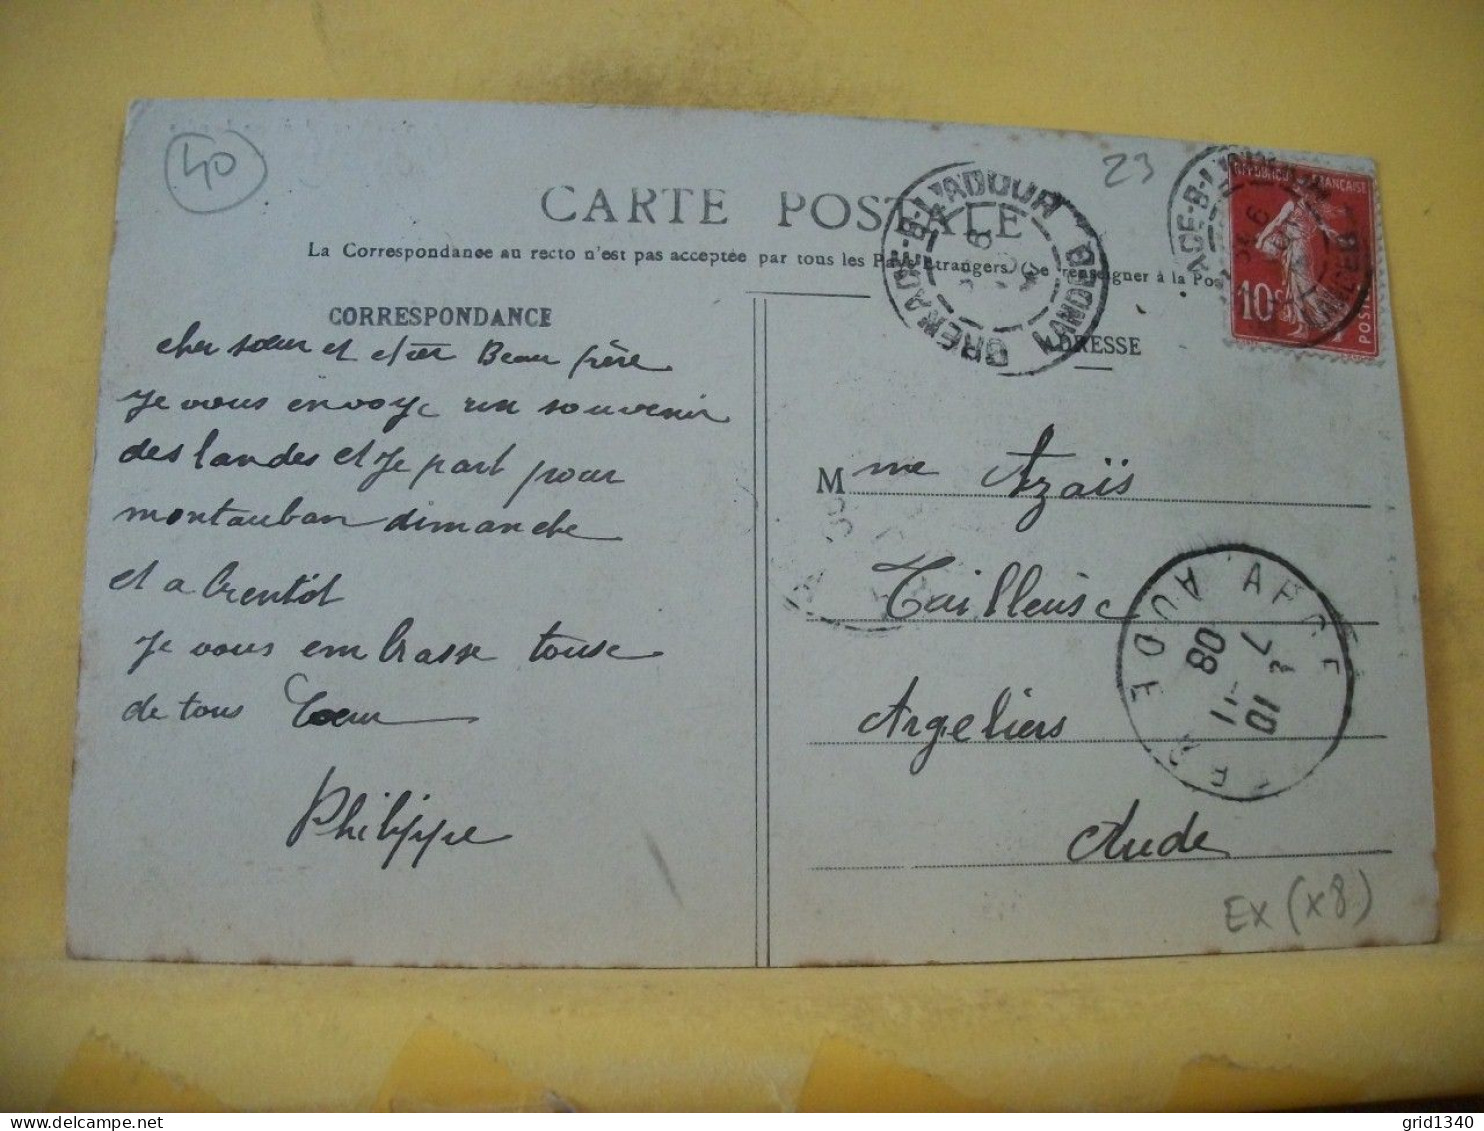 40
23
CARTE POSTALE
La Correspondance au recto n'est pas acceptée par tous les Pays Etrangers (Se renseigner à la Poste
CORRESPONDANCE
cher sœur et cher Beau frère
Je vous envoye un souvenir
des landes et Je part pour
montauban dimanche
et a bientôt
Je vous embrasse touse
de tous Coeur
Philippe
GRENADE-S-L'ADOUR
LANDES
10c
POSTES
ADRESSE
Mme Azaïs
Tailleuse
Argeliers
Aude
AUDE
7 - 11
08
EX (x8)
grid1340